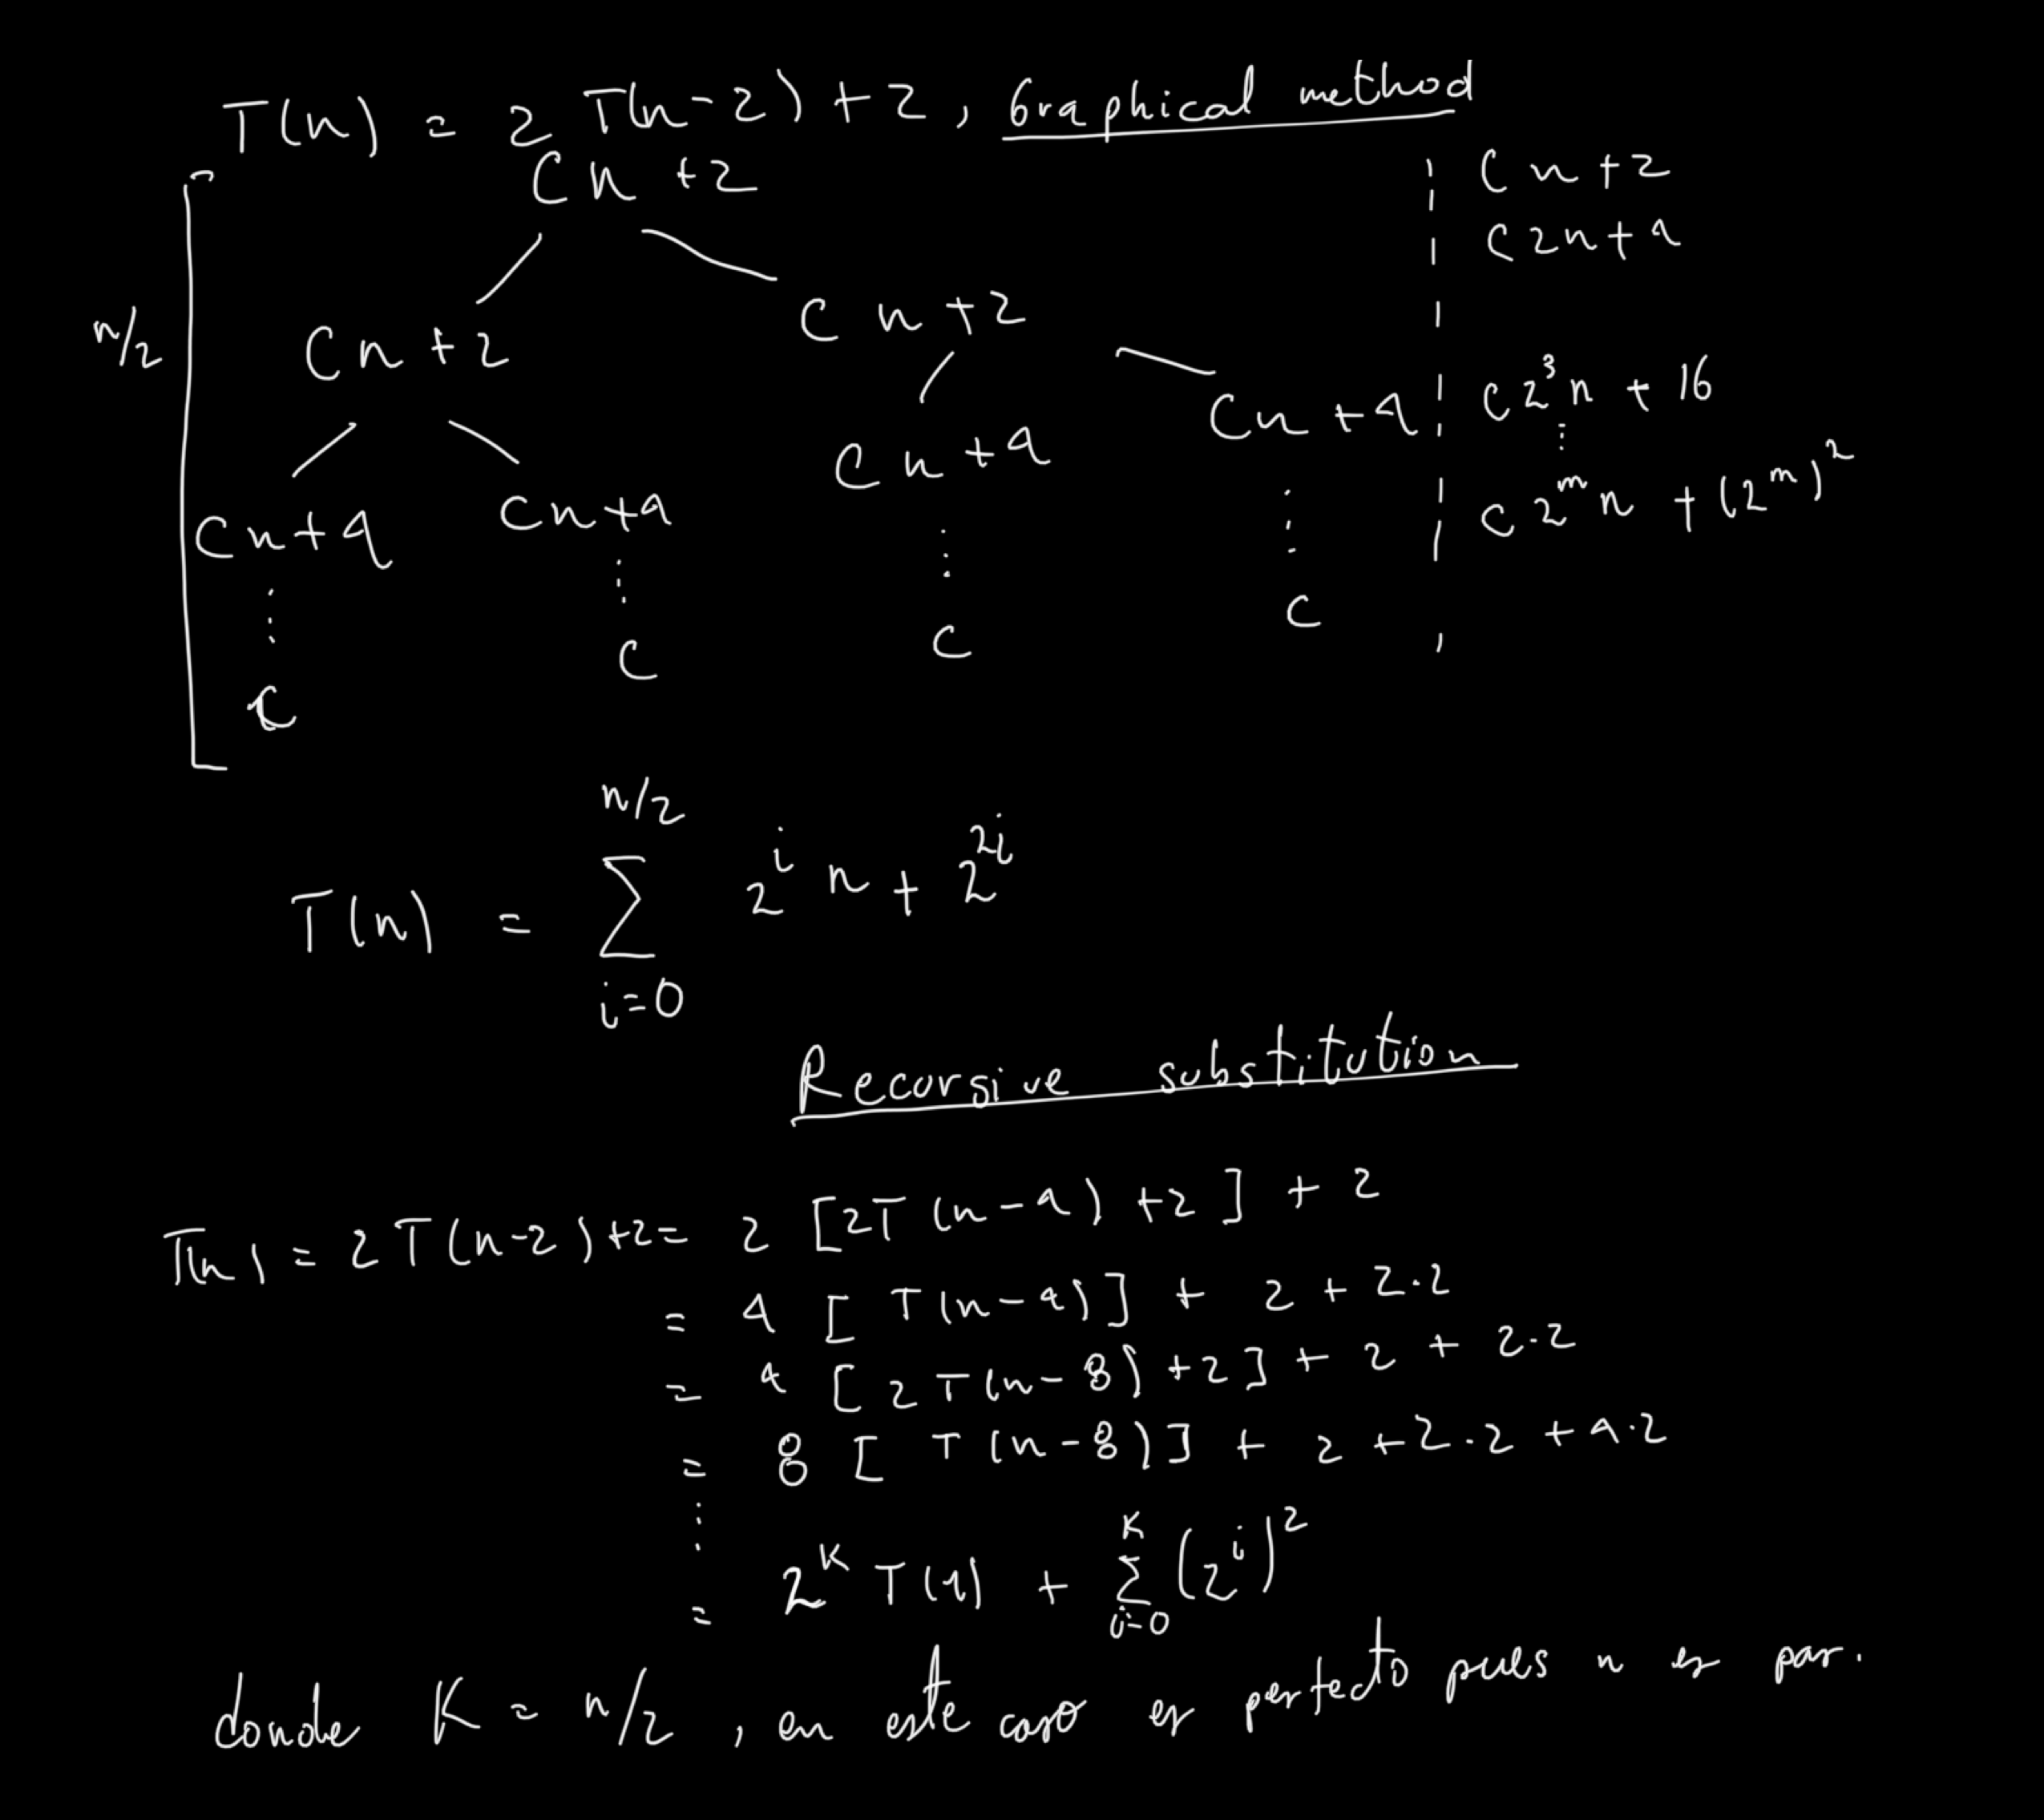 T(n) = 2 T(n-2) + 2, Graphical method
Cn + 2
Cn + 2
C2n + 4
n/2
Cn + 2
Cn + 2
Cn + 4
C2³n + 16
⋮
Cn + 4
Cn + 4
Cn + 4
C2^m n + (2^m)²
⋮ ⋮ ⋮ ⋮
C C C C
T(n) = ∑_{i=0}^{n/2} 2^i n + 2^{2i}
Recursive substitution
T(n) = 2T(n-2)+2 = 2 [2T(n-4) + 2] + 2
= 4 [T(n-4)] + 2 + 2·2
= 4 [2T(n-8) + 2] + 2 + 2·2
= 8 [T(n-8)] + 2 + 2·2 + 4·2
⋮
= 2^K T(1) + ∑_{i=0}^{K} (2^i)²
donde K = n/2, en este caso es perfecto pues n es par.